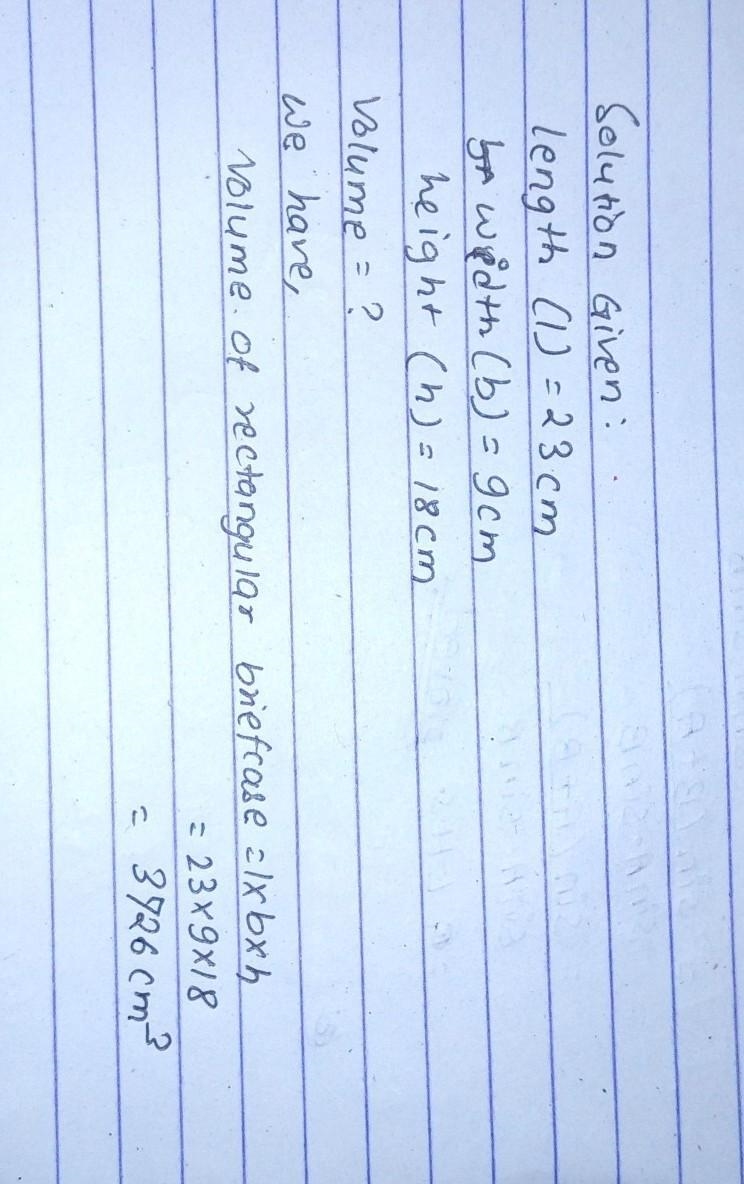 Solution Given:
length (l) = 23 cm
width (b) = 9cm
height (h) = 18cm
Volume = ?
We have,
Volume of rectangular briefcase = l×b×h
= 23×9×18
= 3726 cm³